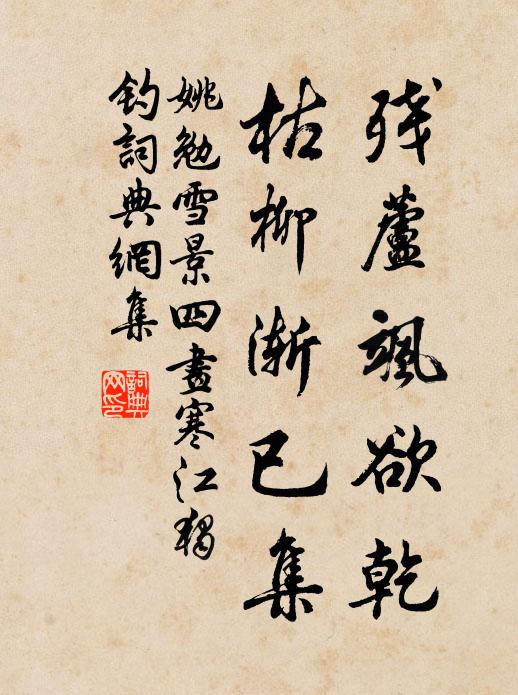 殘蘆颯欲乾
枯柳漸已集
姚勉雪景四畫寒江獨
釣詞典網集
詞典
网印